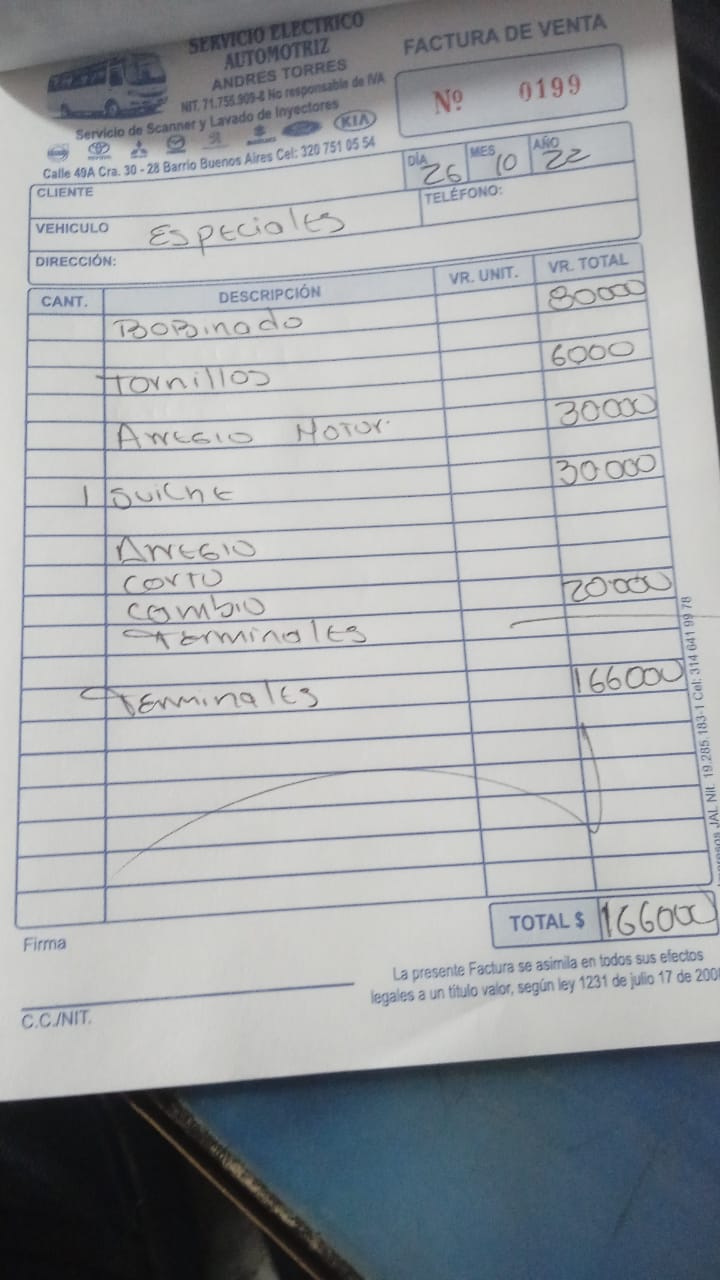 SERVICIO ELECTRICO
AUTOMOTRIZ
ANDRES TORRES
NIT. 71.755.909-8 No responsable de IVA
Servicio de Scanner y Lavado de Inyectores
KIA
Calle 49A Cra. 30 - 28 Barrio Buenos Aires Cel: 320 751 05 54
FACTURA DE VENTA
Nº 0199
DÍA 26 MES 10 AÑO 22
CLIENTE
TELÉFONO:
VEHICULO Especiales
DIRECCIÓN:
CANT. DESCRIPCIÓN VR. UNIT. VR. TOTAL
BOBinado 80000
Tornillos 6000
Arreglo Motor 30000
1 Suiche 30000
Arreglo
corto
cambio 20000
Terminales
Terminales 166000
TOTAL $ 166000
Firma
La presente Factura se asimila en todos sus efectos
legales a un titulo valor, según ley 1231 de julio 17 de 200
C.C./NIT.
JAL Nit. 19.285.183-1 Cel: 314 641 99 78